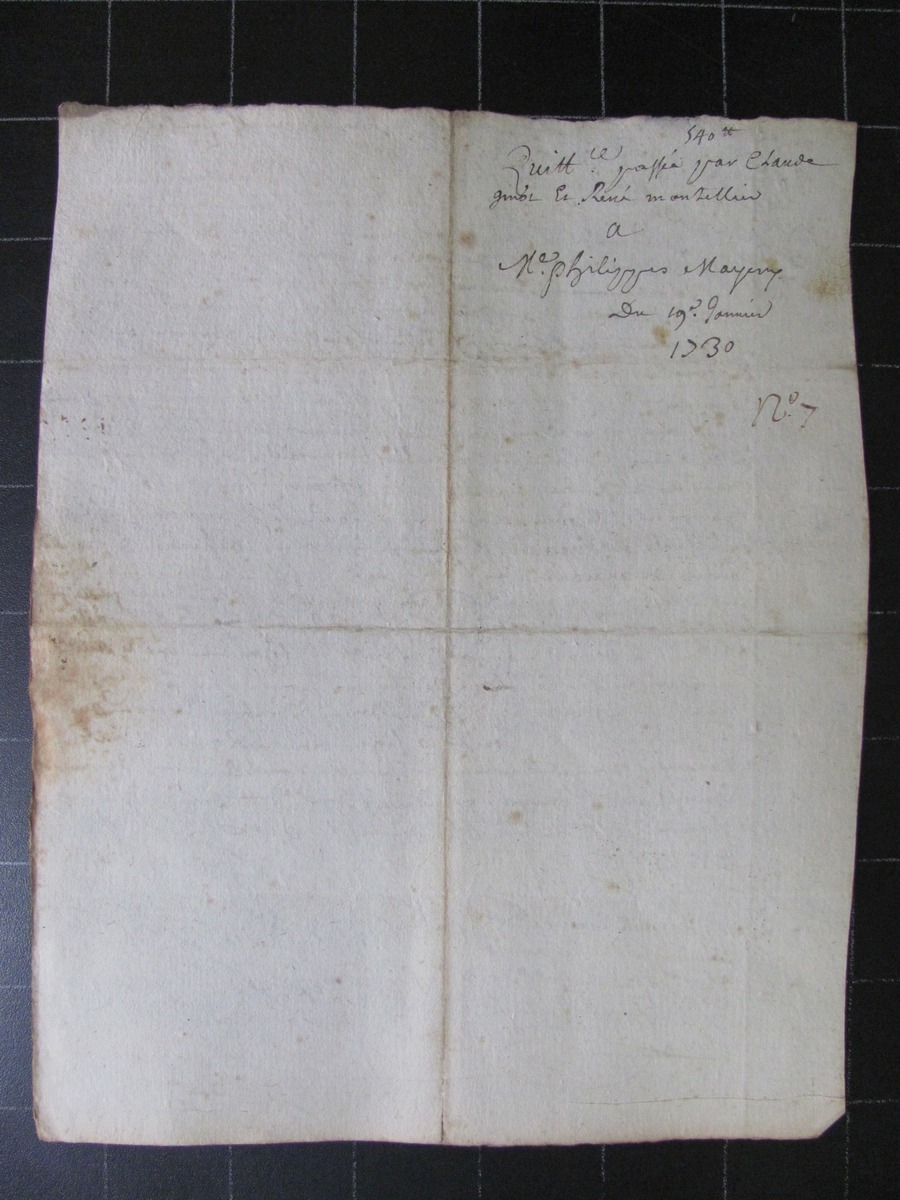 540 tt
Quitt.ce passée par Claude
Et René montellier
a
Me. philippes Mayeux
Du 19e. Janvier
1730
No. 7